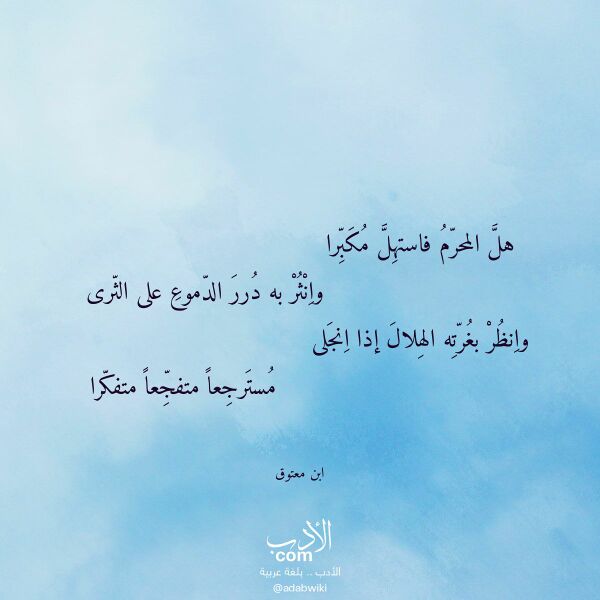 هلَّ المحرّمُ فاستهِلَّ مُكَبِّرا
واِنْثُرْ به دُررَ الدّموعِ على الثّرى
واِنظُرْ بغُرّتِه الهِلالَ إذا اِنجَلى
مُستَرجِعاً متفجِّعاً متفكّرا
ابن معتوق
الأدب
com
الأدب .. بلغة عربية
@adabwiki